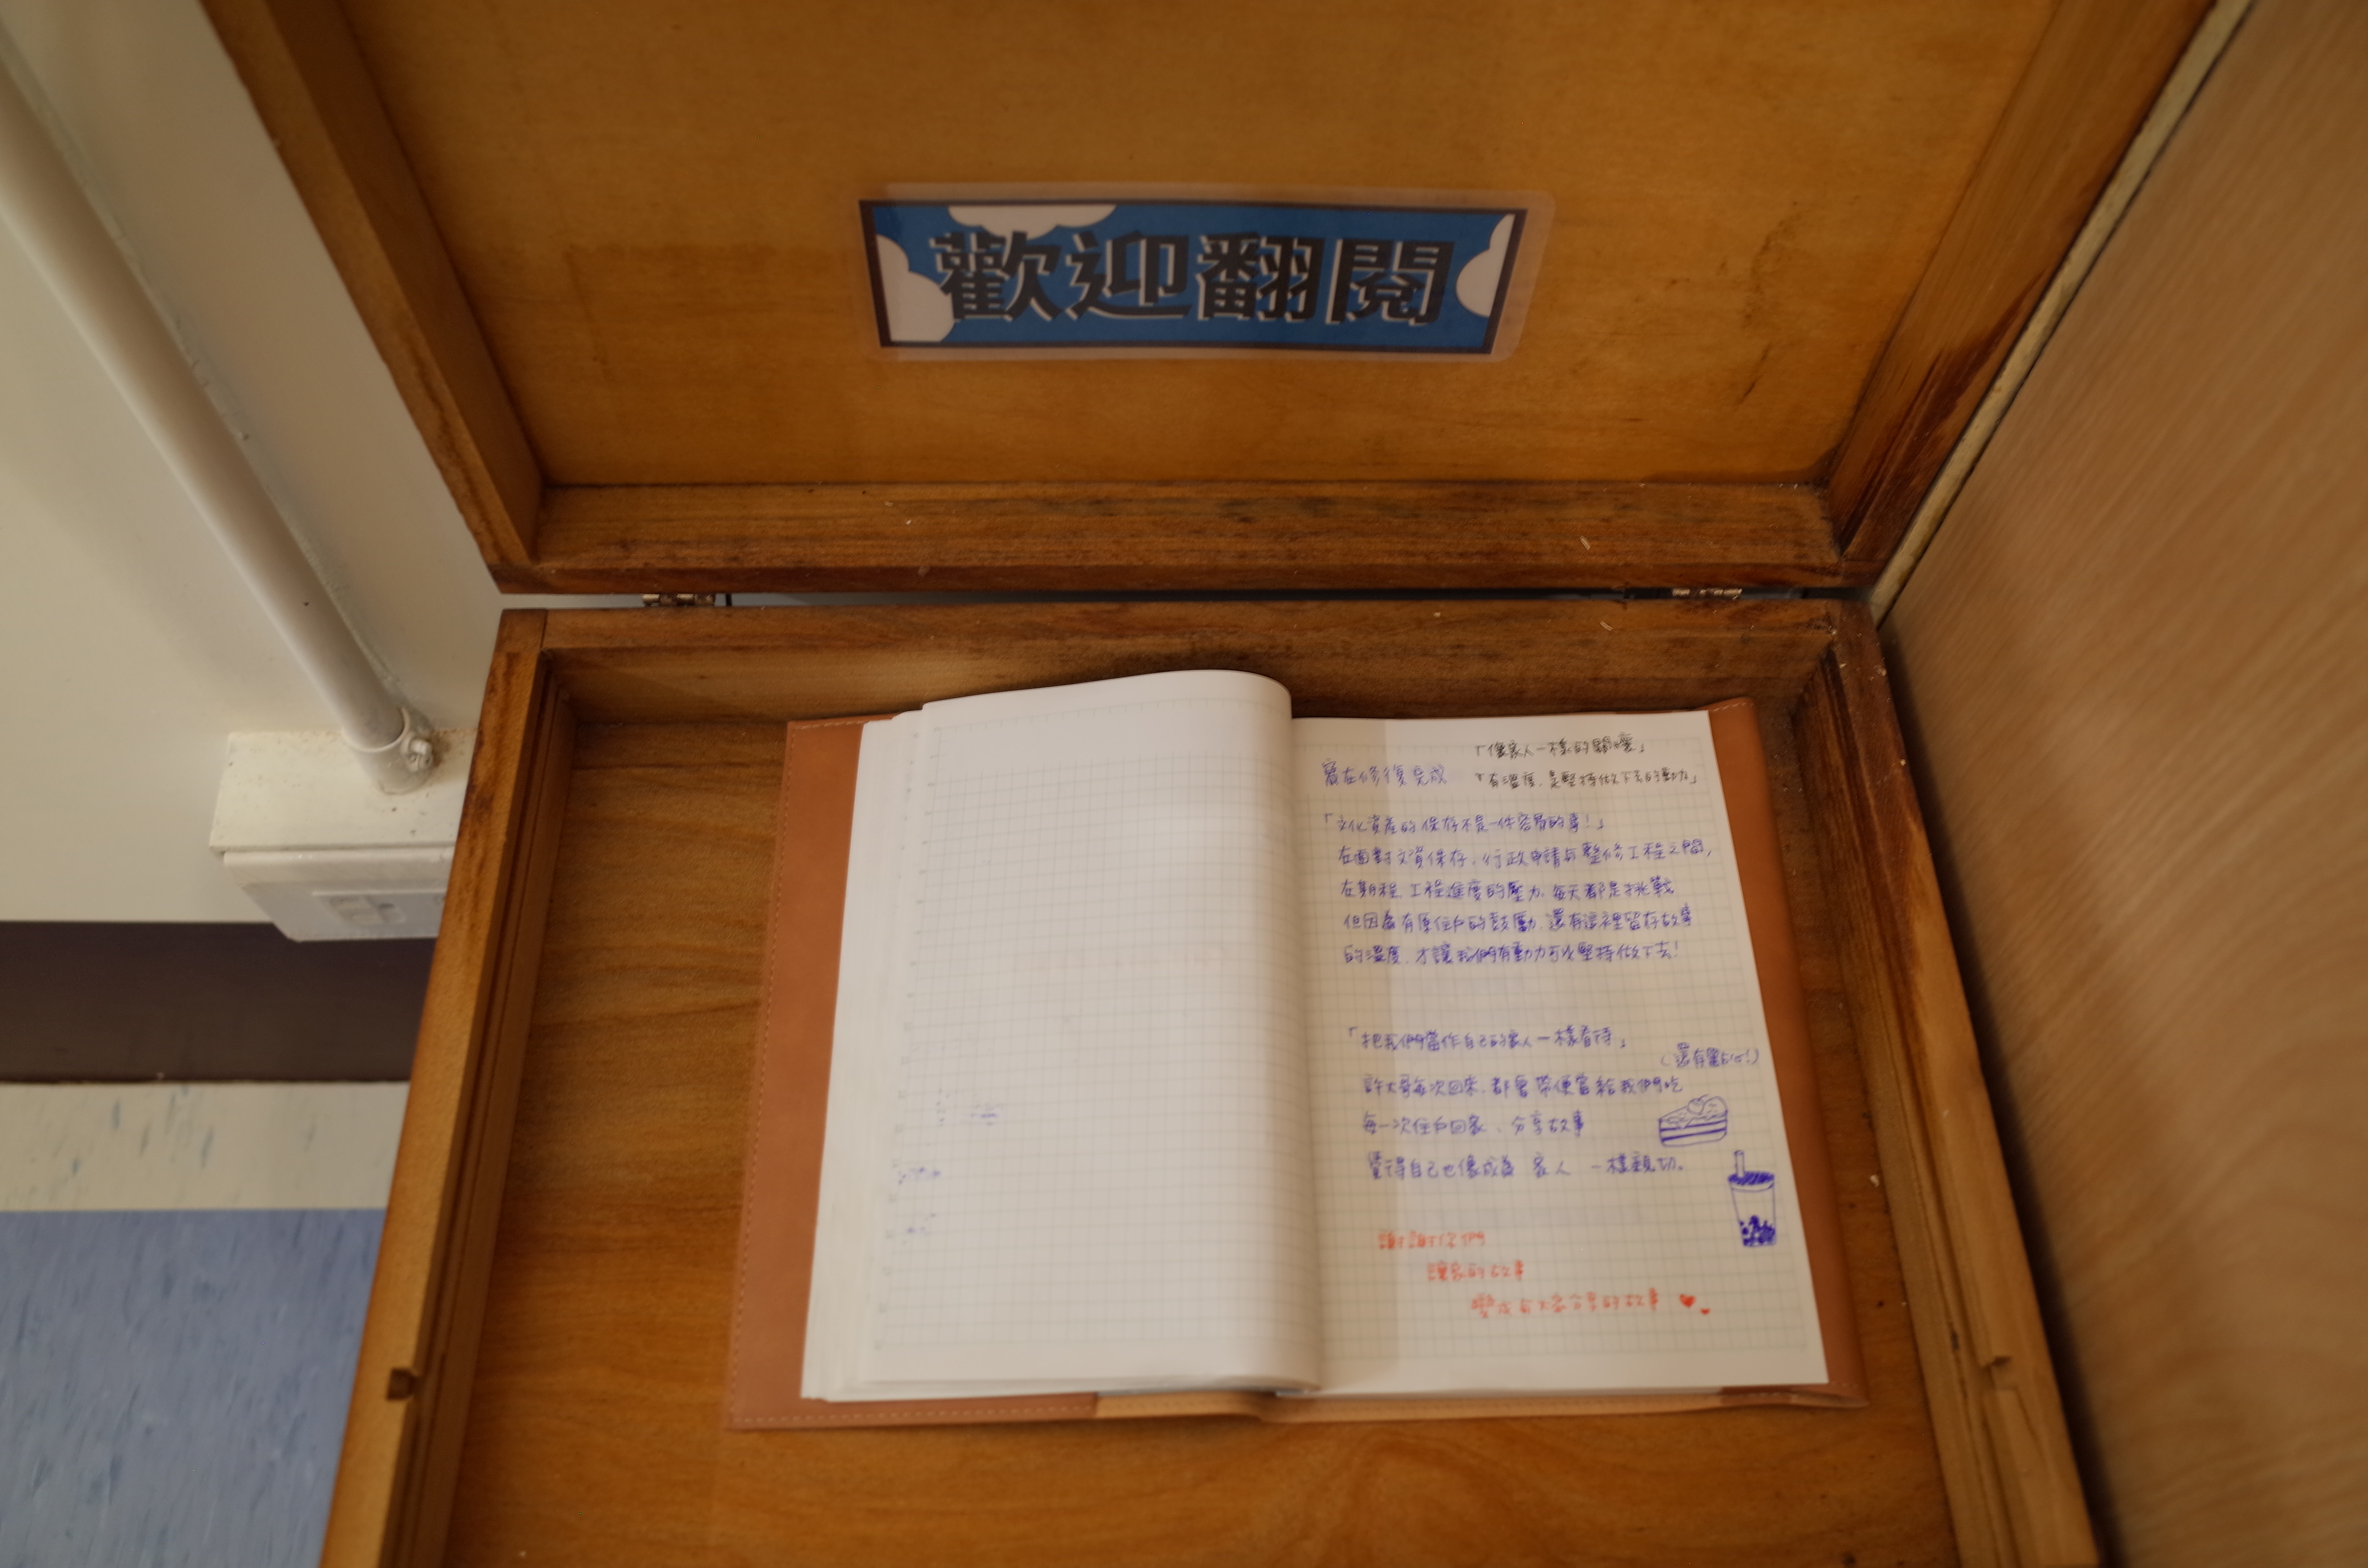 歡迎翻閱
「像家人一樣的關懷」
窩在修復完成
「有溫度，是堅持做下去的動力」
「文化資產的保存不是一件容易的事!」
在面對文資保存、行政申請與整修工程之間，
在期程、工程進度的壓力，每天都是挑戰
但因為有原住戶的鼓勵，還有這裡留存故事
的溫度，才讓我們有動力可以堅持做下去!
「把我們當作自己的家人一樣看待」
(還有蛋糕!)
許大哥每次回來，都會帶便當給我們吃
每一次住戶回家、分享故事
覺得自己也像成為 家人 一樣親切。
謝謝你們
讓家的故事
變成每人都分享的故事